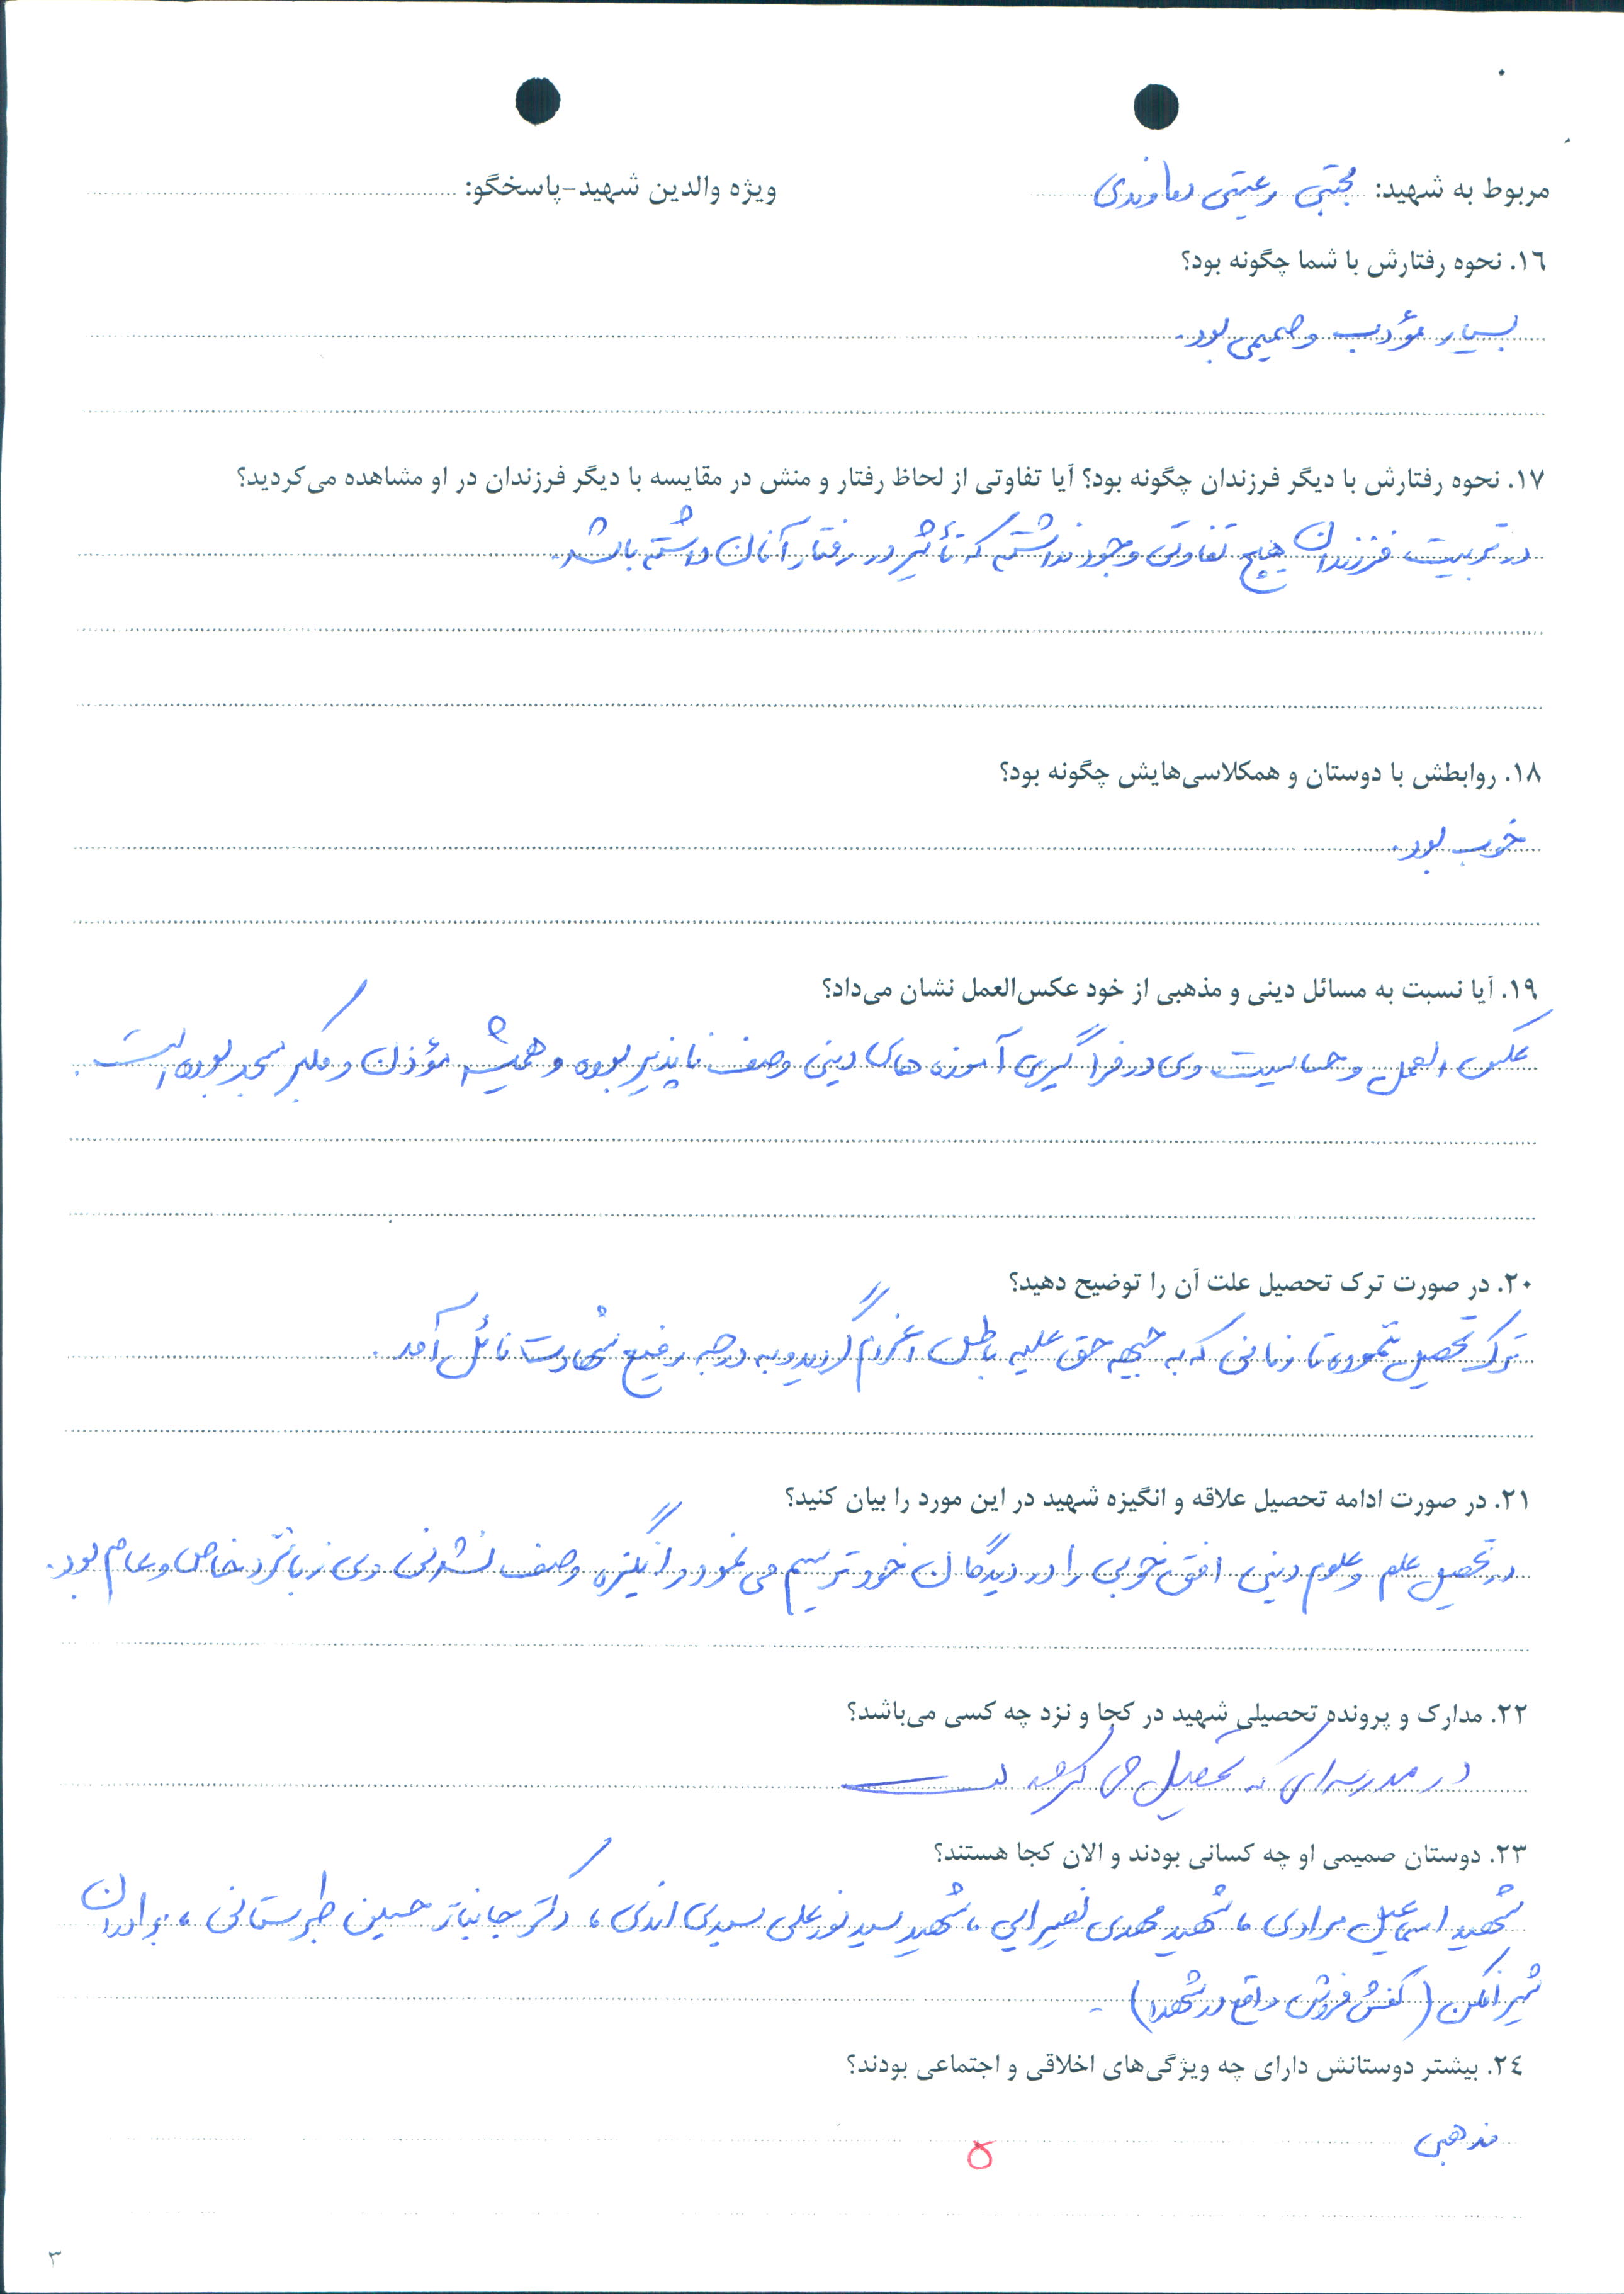 مربوط به شهید: مجتبی رعیتی دماوندی ویژه والدین شهید-پاسخگو:
١٦. نحوه رفتارش با شما چگونه بود؟
بسیار مؤدب و صمیمی بود.
١٧. نحوه رفتارش با دیگر فرزندان چگونه بود؟ آیا تفاوتی از لحاظ رفتار و منش در مقایسه با دیگر فرزندان در او مشاهده می‌کردید؟
در تربیت فرزندان هیچ تفاوتی وجود نداشته که تأثیر در رفتار آنان داشته باشد.
١٨. روابطش با دوستان و همکلاسی‌هایش چگونه بود؟
خوب بود.
١٩. آیا نسبت به مسائل دینی و مذهبی از خود عکس‌العمل نشان می‌داد؟
عکس العمل و حساسیت وی در فراگیری آموزه های دینی وصف ناپذیر بوده و همیشه مؤذن و مکبر مسجد بوده است.
٢٠. در صورت ترک تحصیل علت آن را توضیح دهید؟
ترک تحصیل ننموده تا زمانی که به جبهه حق علیه باطل اعزام گردید و به درجه رفیع شهادت نائل آمد.
٢١. در صورت ادامه تحصیل علاقه و انگیزه شهید در این مورد را بیان کنید؟
در تحصیل علم و علوم دینی افق خوبی را در دیدگان خود ترسیم می نمود و انگیزه وصف نشدنی وی زبانزد خاص و عام بود.
٢٢. مدارک و پرونده تحصیلی شهید در کجا و نزد چه کسی می‌باشد؟
در مدرسه ای که تحصیل می کرده است
٢٣. دوستان صمیمی او چه کسانی بودند و الان کجا هستند؟
شهید اسماعیل مرادی، شهید مهدی نصیرایی، شهید سید نورعلی سیدی اندی، دکتر جانباز حسین طبرستانی، برادران
شیرافکن (کفش فروشی واقع در شهدا) -
٢٤. بیشتر دوستانش دارای چه ویژگی‌های اخلاقی و اجتماعی بودند؟
مذهبی
۵
٣